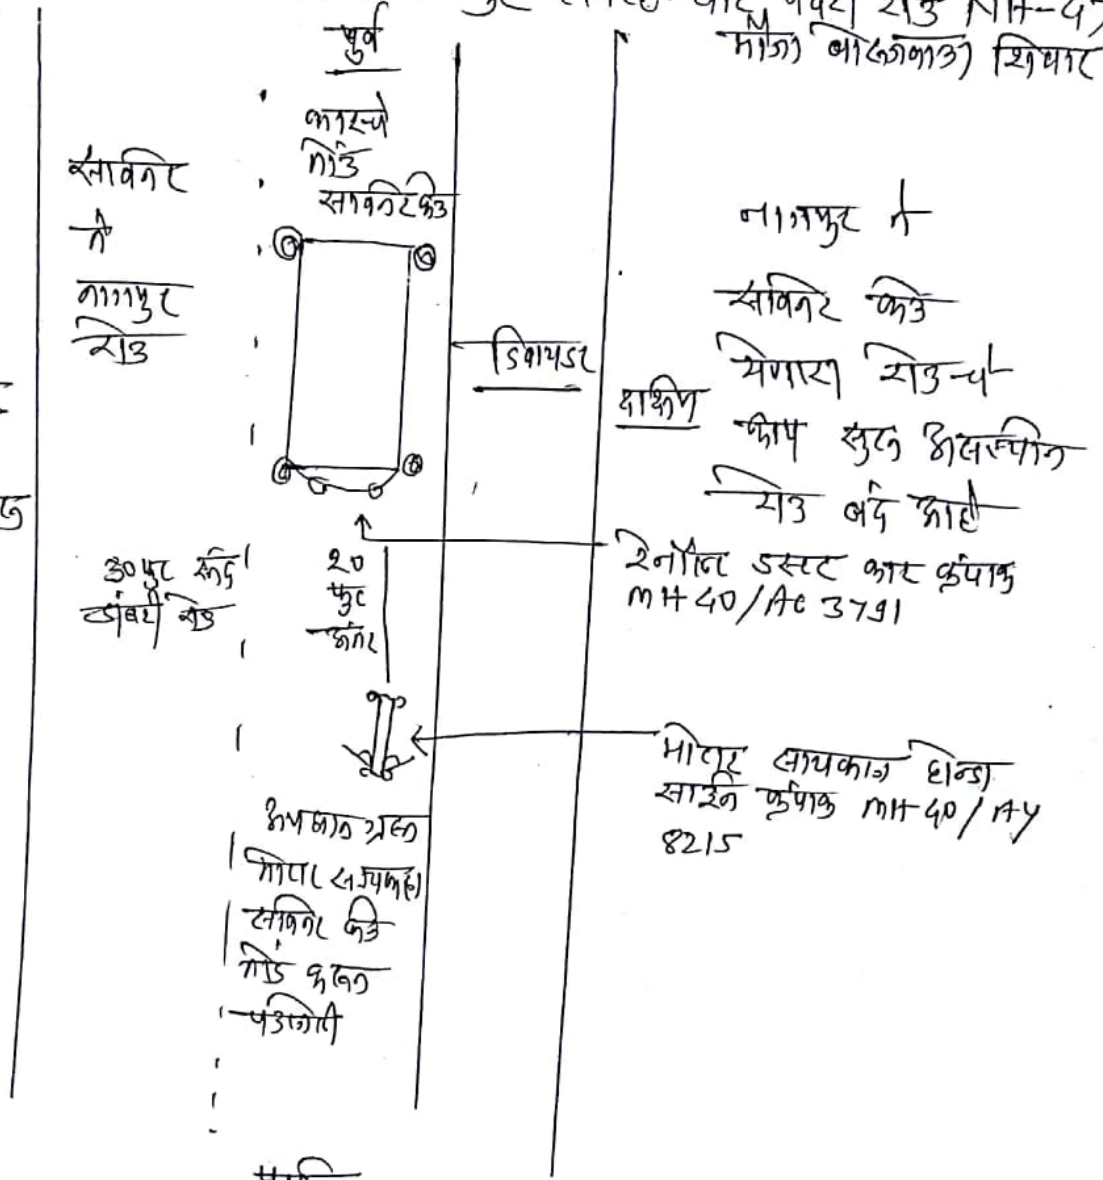 रोड NH-47
मौजा बोरुजवाडा शिवार
पुर्व
कारचे
तोंड
सावनेर कडे
सावनेर
ते
नागपुर
रोड
नागपुर ते
सावनेर कडे
येणारा रोड चे
काम सुरू असल्याने
रोड बंद आहे
डिवायडर
दक्षिण
रेनॉल्ट डस्टर कार क्रमांक
MH 40/AC 3791
30 फुट रूंद
डांबरी रोड
२०
फुट
अंतर
मोटार सायकल होन्डा
साईन क्रमांक MH 40/AY
8215
अपघात ग्रस्त
मोटार सायकल
सावनेर कडे
तोंड करून
पडलेली